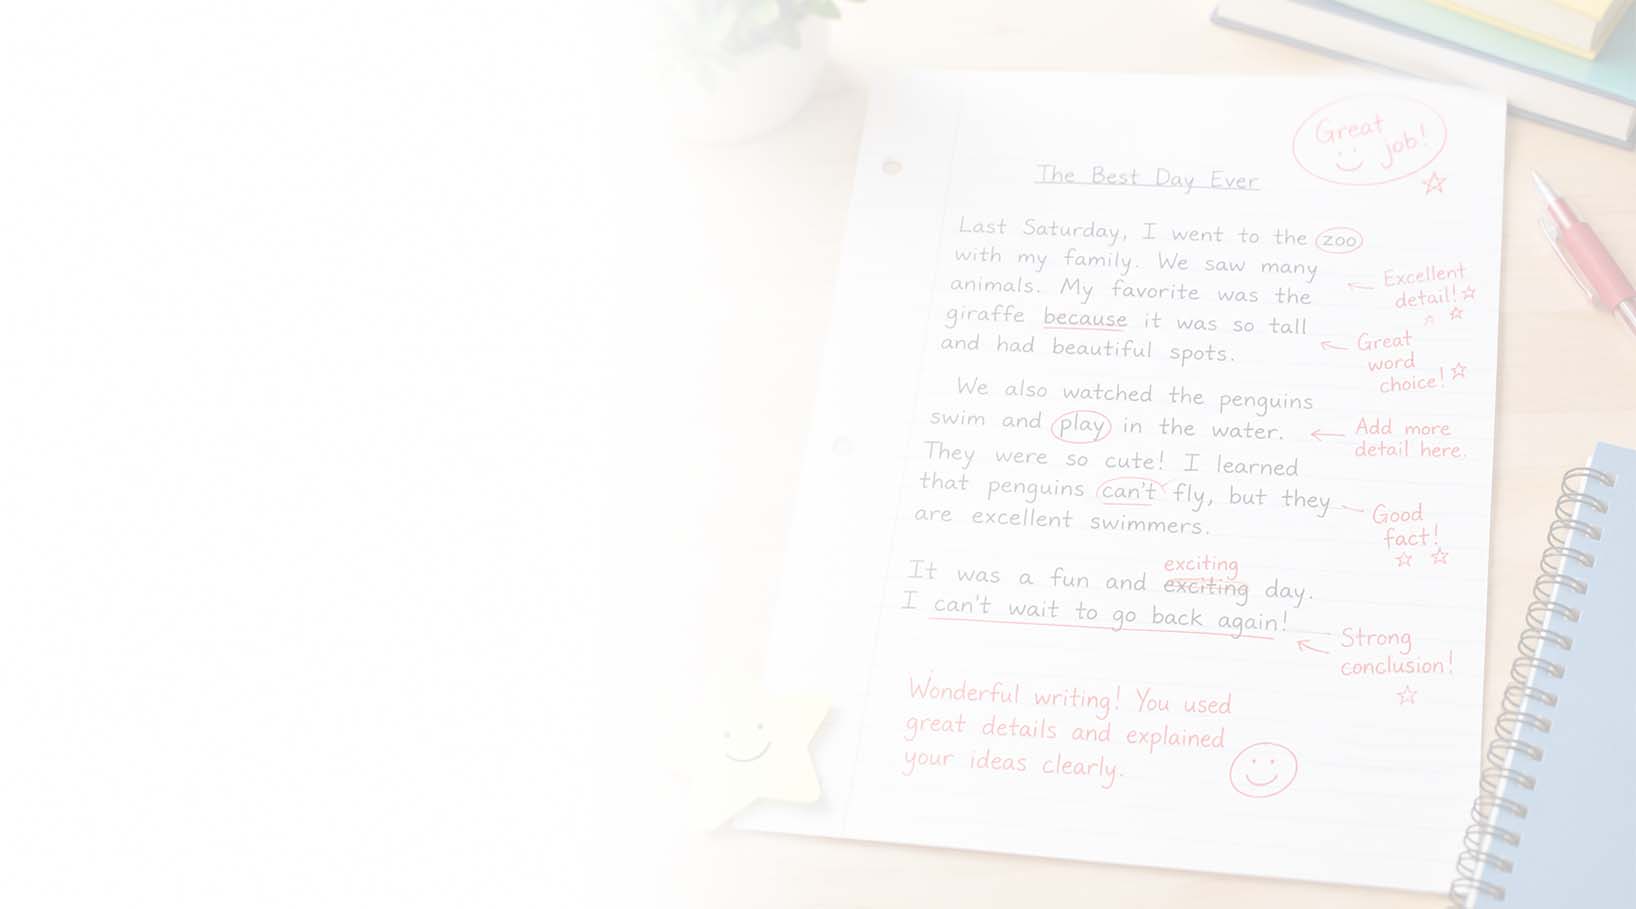 Great
job!
The Best Day Ever
Last Saturday, I went to the zoo
with my family. We saw many
animals. My favorite was the
giraffe because it was so tall
and had beautiful spots.
Excellent
detail!
Great
word
choice!
We also watched the penguins
swim and play in the water.
They were so cute! I learned
that penguins can't fly, but they
are excellent swimmers.
Add more
detail here.
Good
fact!
exciting
It was a fun and exciting day.
I can't wait to go back again!
Strong
conclusion!
Wonderful writing! You used
great details and explained
your ideas clearly.